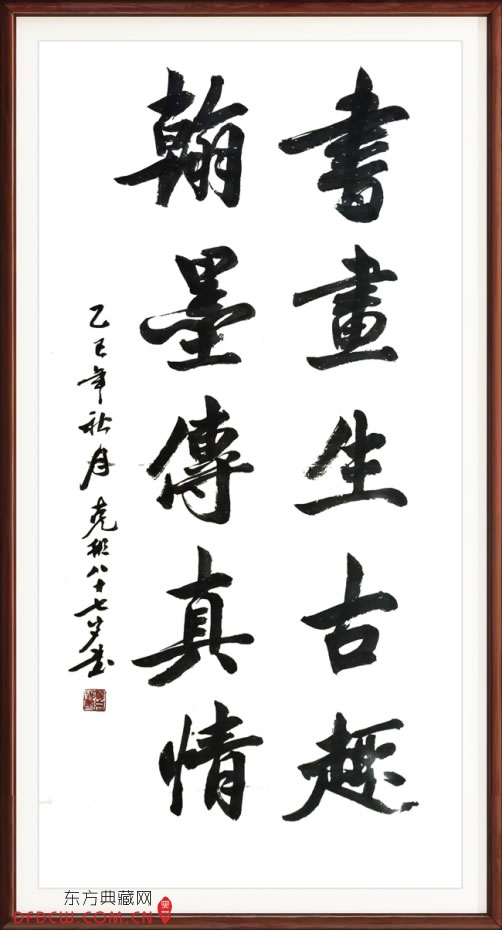 書畫生古趣
翰墨傳真情
乙巳年秋月 克彬八十七岁书
东方典藏网
DFDCW.COM.CN